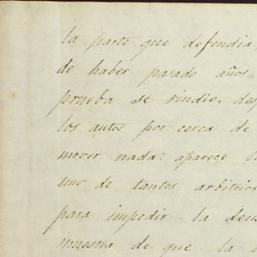 la parte que defendia
de haber pasado años
prueba se rindio, des
los autos por cerca de
mover nada: aparece
uno de tantos arbitrios
para impedir la deci
muestra de que la